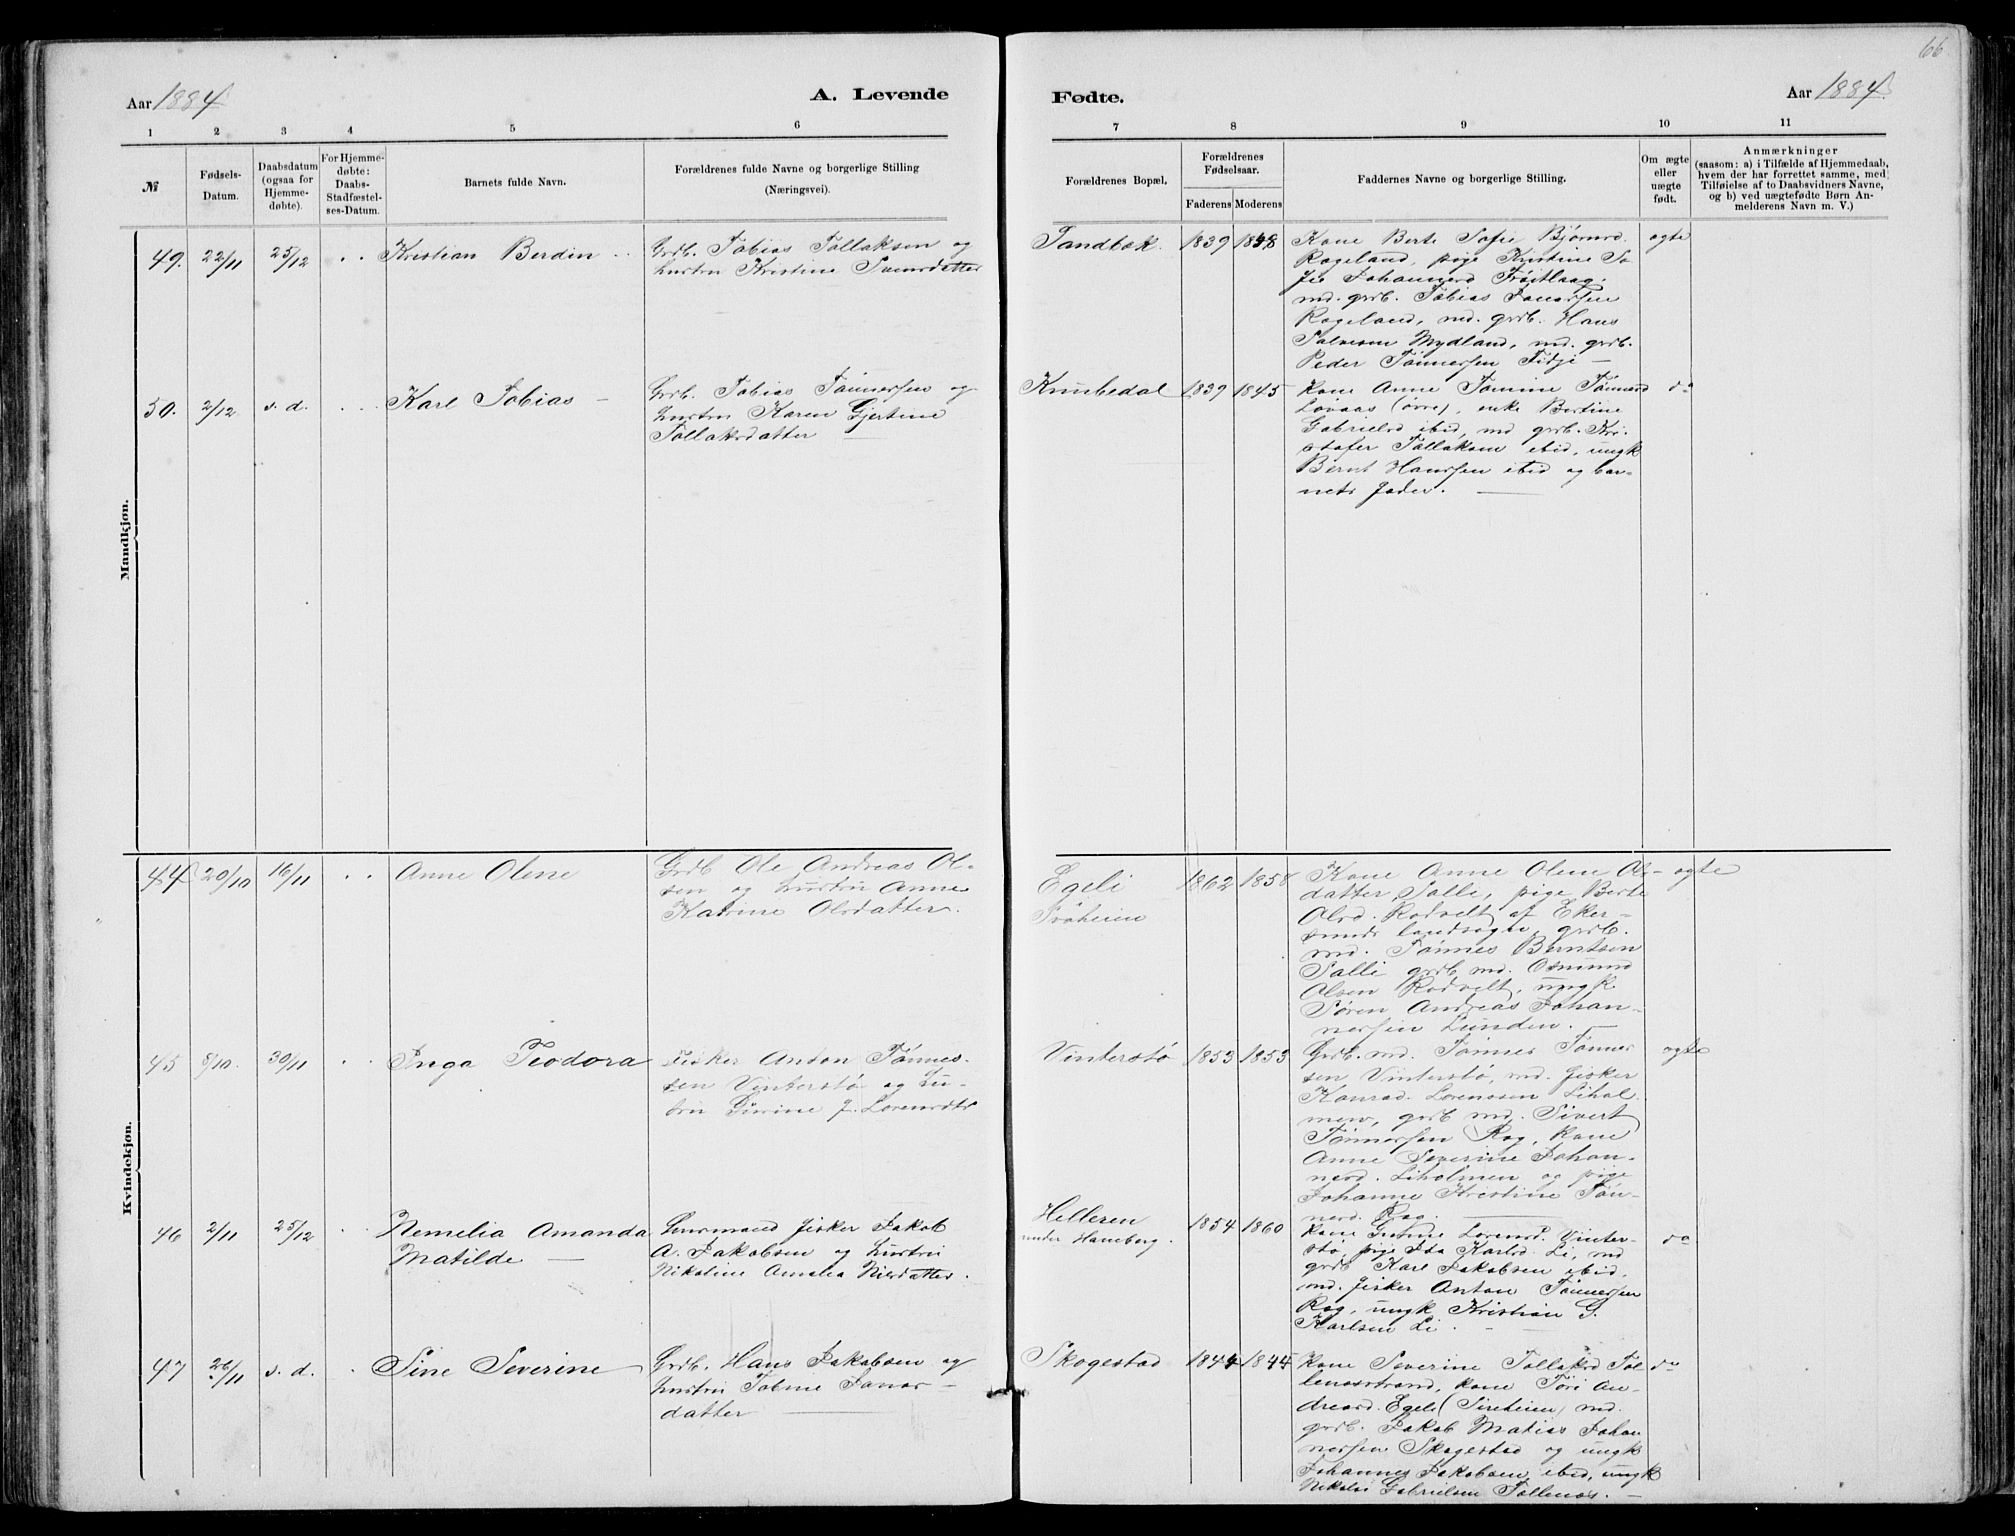 66
Aar 1884
A. Levende
Fødte.
Aar 1884.
1 2 3 4 5 6 7 8 9 10 11
№
Fødsels-
Datum.
Daabsdatum
(ogsaa for
Hjemme-
døbte).
For Hjemme-
døbte:
Daabs-
Stadfæstel-
ses-Datum.
Barnets fulde Navn.
Forældrenes fulde Navne og borgerlige Stilling
(Næringsvei).
Forældrenes Bopæl.
Forældrenes
Fødselsaar.
Faderens Moderens
Faddernes Navne og borgerlige Stilling.
Om ægte
eller
uægte
født.
Anmærkninger
(saasom: a) i Tilfælde af Hjemmedaab,
hvem der har forrettet samme, med
Tilføielse af to Daabsvidners Navne,
og b) ved uægtefødte Børn An-
melderens Navn m. V.)
Mandkjøn.
49. 22/11 25/12 Kristian Berdin
Grdb. Tobias Tollaksen og
hustru Kristine Svensdatter
Sandbæk. 1839 1848
Kone Berte Sofie Bjørnsd.
Rageland, pige Kristine So
fie Johannesd
md. grdb. Tobias Janassen
Rageland, md. grdb. Hans
Salvesen Mydland, md. grdb.
Peder Tønnessen Fidje —
ægte
50. 2/12 s. d. Karl Tobias —
Grdb. Tobias Tønnessen og
hustru Karen Gjertine
Tollaksdatter —
Knubedal 1839 1845
Kone Anne Tomine Tønnesd
Lovaas (øvre), enke Bertine
Gabrielsd ibid, md grdb. Kri-
stofer Tollaksen ibid, ungk
Bernt Hanssen ibid og bar-
nets fader. —
do
Kvindekjøn.
44 20/10 16/11 Anne Olene
Grdb Ole Andreas Ol-
sen og hustru Anne
Katrine Olsdatter.
Egeli 1862 1858
Kone Anne Olene Ols-
datter Salli, pige Berte
Olsd. Rodvelt af Eker-
sunds landsogn, grdb.
md. Tønnes Berntsen
Salli grdb. md. Osmund
Olsen Rodvelt, ungk
Søren Andreas Johan-
nessen Lunden. —
ægte
45 8/10. 30/11 Inga Teodora
Fisker Anton Tønnes-
sen Vinterstø og hu-
stru Gurine J. Lorensdtr
Vinterstø 1853 1853
Grdb. md. Tønnes Tønnes
sen Vinterstø, md. fisker
Konrad Lorenssen Lihol
men, grdb md. Sivert
Tønnessen Rog, kone
Anne Severine Johan-
nesd. Liholmen og pige
Johanne Kristine Tøn-
nesd. Rog.
ægte
46 2/11 25/12 Nemelia Amanda
Matilde —
Husmand fisker Jakob
A. Jakobsen og hustru
Nikoline Amalia Nilsdatter.
Helleren
under Hamberg. 1854 1860
kone Gurine Lorensd. Vinter-
stø, pige Ida Karlsd. Li, md
grdb Karl Jakobsen ibid,
md. fisker Anton Tønnessen
Rog, ungk Kristian G.
Karlsen Li.
do
47 26/11 s. d. Sine Severine
Grdb. Hans Jakobsen og
hustru Tobine Janas-
datter —
Skogestad 1844 1844
kone Severine Tollaksd Tol-
lenesstrand, kone Tøri An-
dreasd. Egeli md.
grdb. Jakob Matias Johan
nessen Skogestad og ungk
Johannes Jakobsen ibid, ungk
Nikolai Gabrielsen Tollenes. —
do